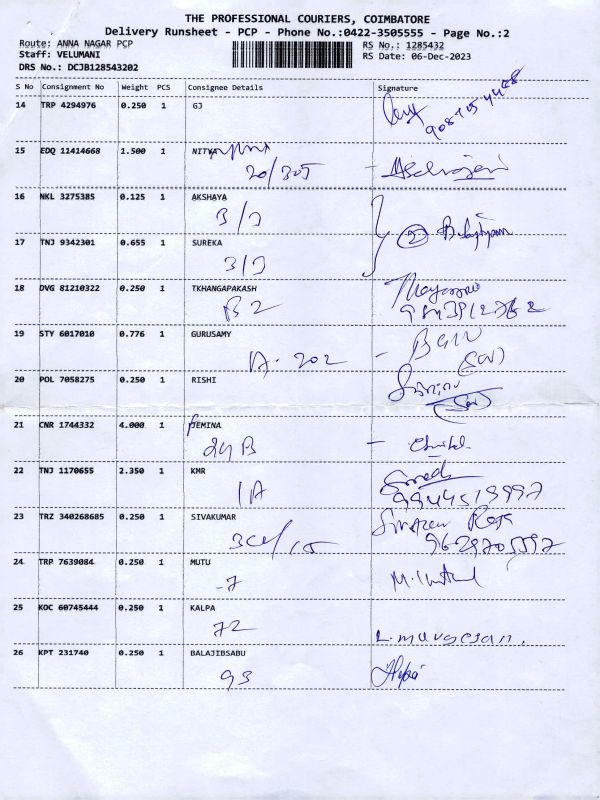 THE PROFESSIONAL COURIERS, COIMBATORE
Delivery Runsheet - PCP - Phone No.:0422-3505555 - Page No.:2
Route: ANNA NAGAR PCP RS No.: 1285432
Staff: VELUMANI RS Date: 06-Dec-2023
DRS No.: DCJB128543202
S No Consignment No Weight PCS Consignee Details Signature
14 TRP 4294976 0.250 1 GJ
15 EDQ 11414668 1.500 1 NITYA
20/305
16 NKL 3275385 0.125 1 AKSHAYA
3/J
17 TNJ 9342301 0.655 1 SUREKA
3/J
18 DVG 81210322 0.250 1 TKHANGAPAKASH
B2
19 STY 6017010 0.776 1 GURUSAMY
1A-202
20 POL 7058275 0.250 1 RISHI
21 CNR 1744332 4.000 1 JEMINA
24 B
22 TNJ 1170655 2.350 1 KMR
1A 9944519997
23 TRZ 340268685 0.250 1 SIVAKUMAR
24 TRP 7639084 0.250 1 MUTU
-7
25 KOC 60745444 0.250 1 KALPA
72 L.murugesan.
26 KPT 231740 0.250 1 BALAJIBSABU
93